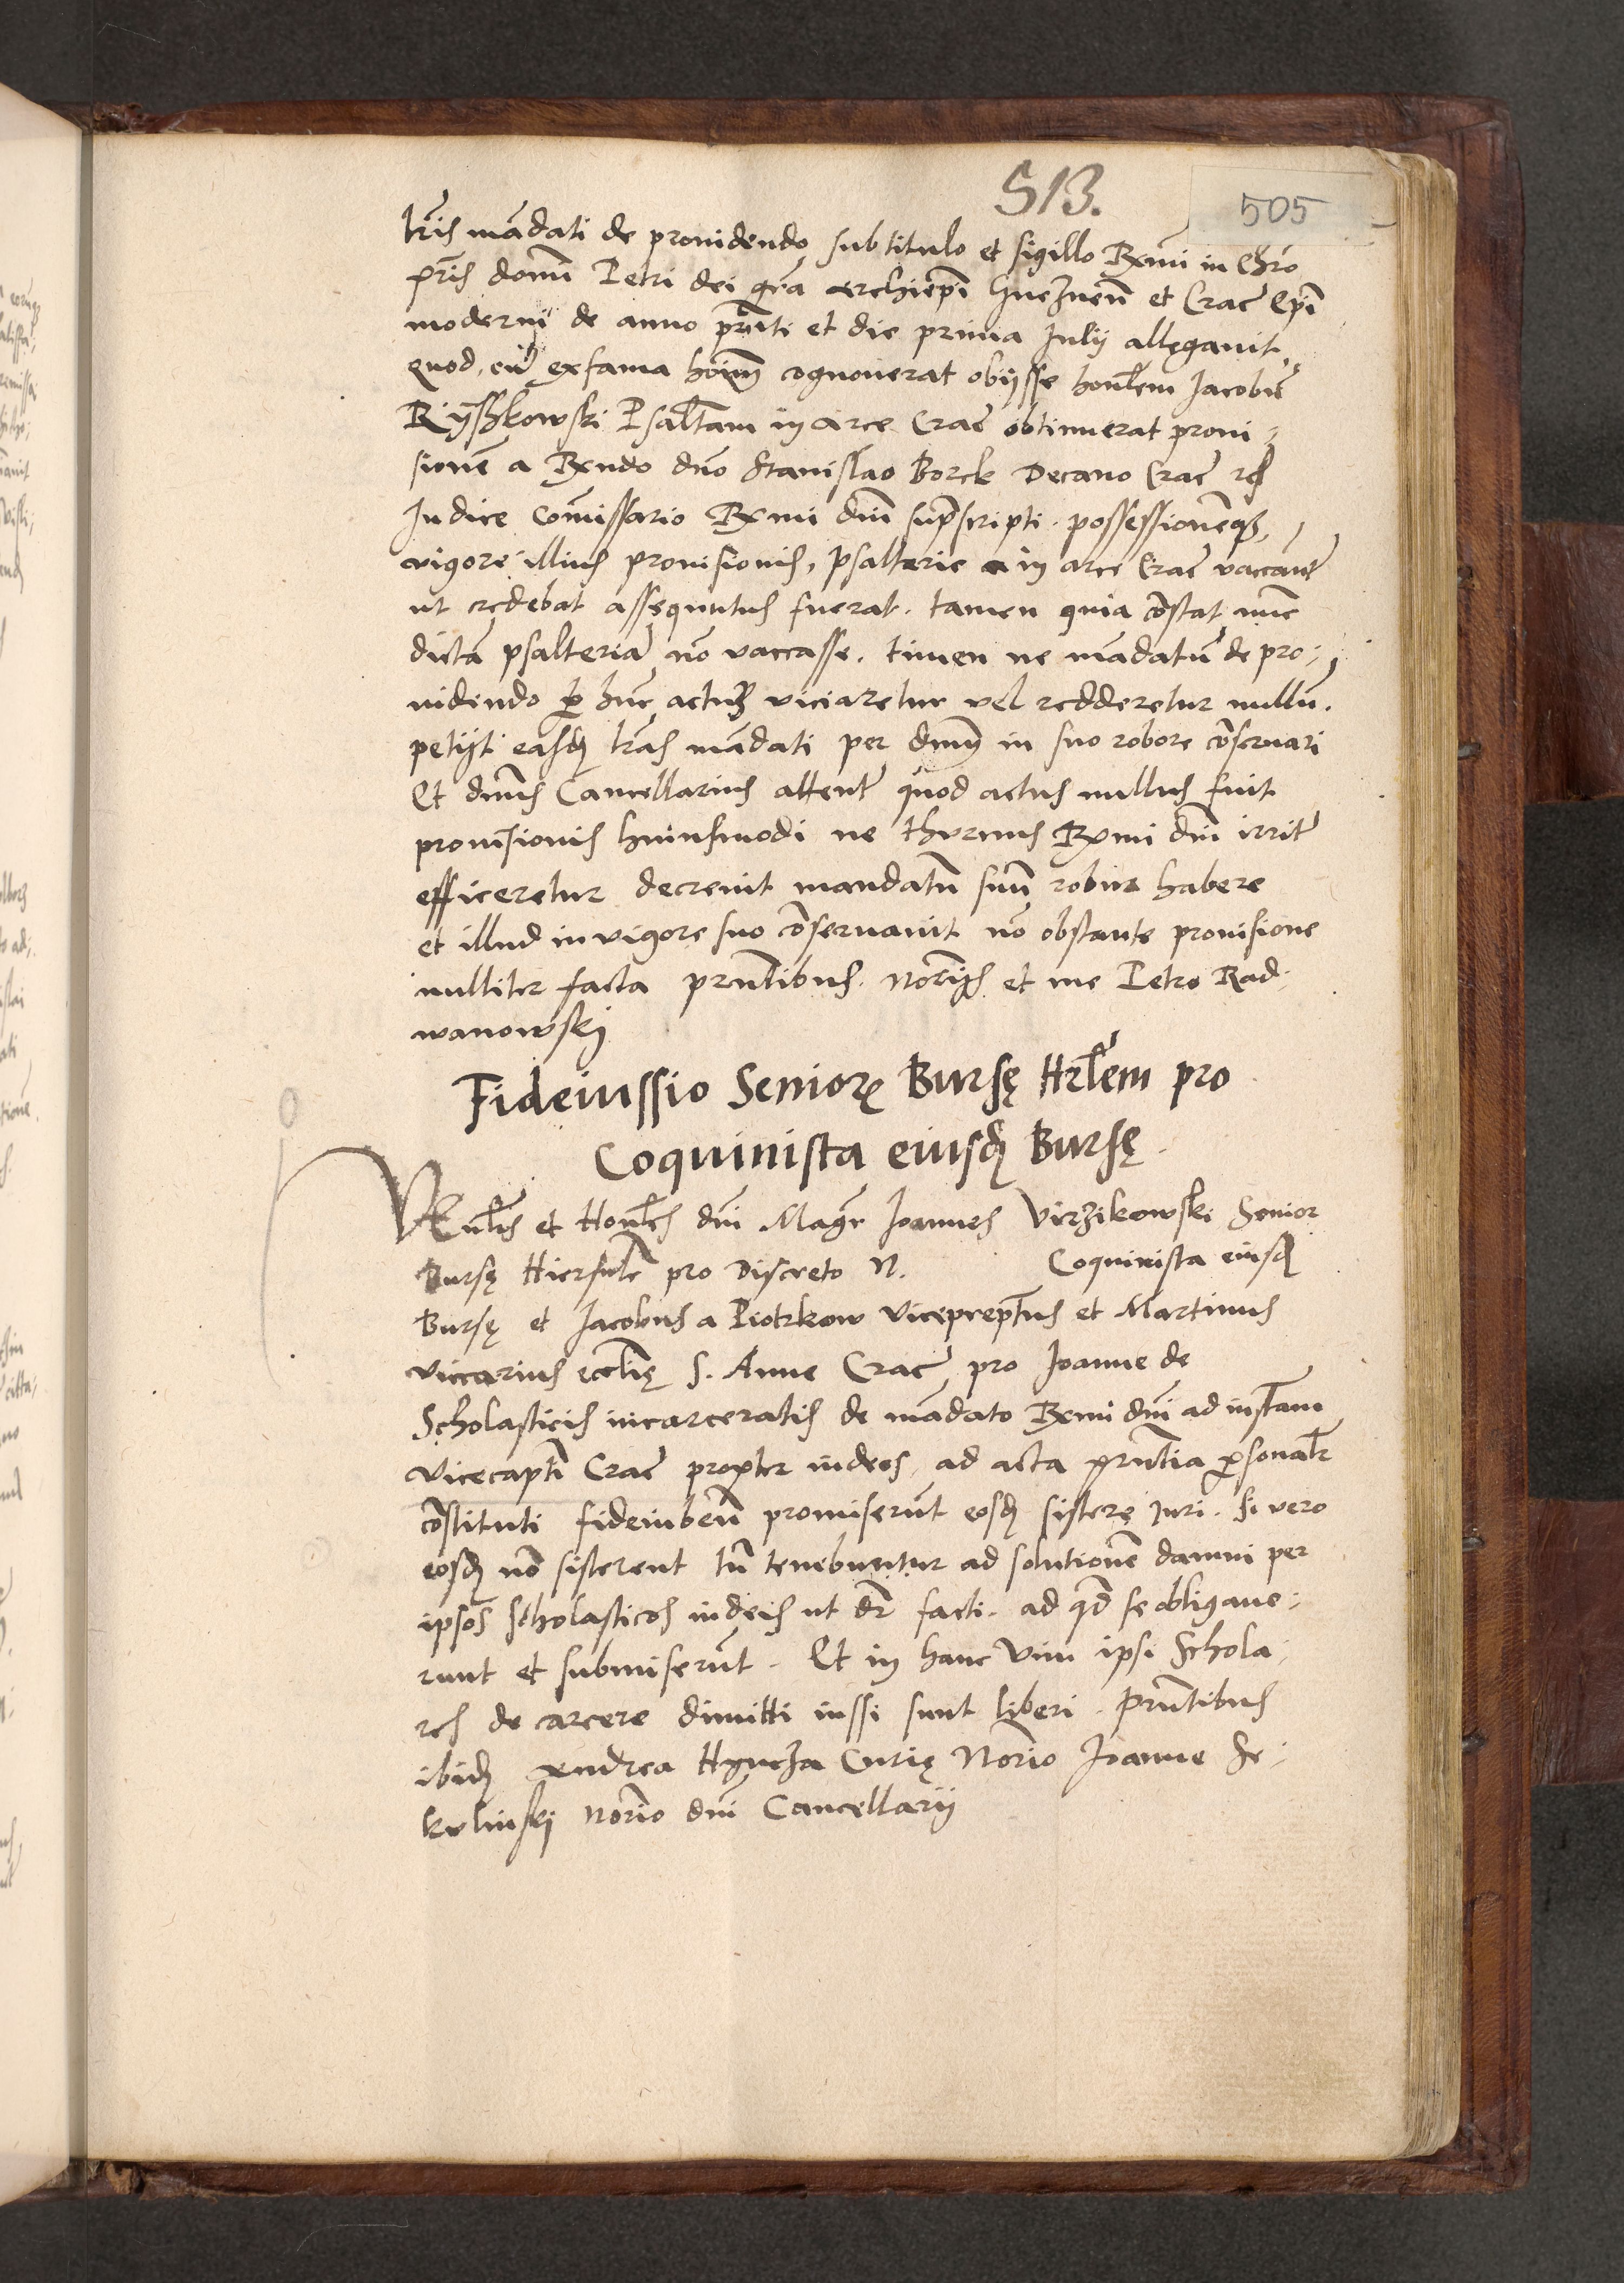 513.
505
lr̃is mãdati de prouidendo sub titulo et sigillo Rx̃mi in Chr̃o
pr̃is domī Petri dei gr̃a Archiep̃i Gneznen̄ et Crac̄ Ep̃i
moderni de anno pr̃nti et die prima Julij allegauit
quod cū ex fama hoīm cognouerat obijsse honl̃em Jacobū
Rijszkowski Psalt̃am in arce Crac̄ obtinuerat proui-
sionē a Rx̃ndo dn̄o Stanislao Borek Decano Crac̄
Judice Com̄issario Rx̃mi dn̄i sup̃scripti possessionemq̃
vigore illius prouisionis, psalterie in arce Crac̄ vaccant̄
ut credebat assequutus fuerat. tamen quia cōstat nūc
dictā psalteriā nō vaccasse. timen ne mādatū de pro-
uidendo p hūc actum viciaretur vel redderetur nullū.
petijt easdē lr̃as mādati per dn̄um in suo robore cōseruari
Et dn̄us Cancellarius attent̄ quod actus nullus fuit
prouisionis huiusmodi ne thurnus Rx̃mi dn̄i irrit̄
efficeretur decreuit mandatū suū robur habere
et illud in vigore suo cōseruauit nō obstante prouisione
nulliter facta pr̃ntibus. Nor̃ijs et me Petro Rad-
wanowskj
Fideiussio Seniorꝝ Bursę Hrl̃em pro
Coquinista eiusdē Bursę.
VEnl̃es et Honl̃es dn̄i Magr̃ Joannes Virzikowski Senior
Bursę Hierslm̄ pro Discreto N. Coquinista eiusdē
Bursę et Jacobus a Piotrkow viceprep̄tus et Martinus
viccarius eccl̃ię S. Anne Crac̄ pro Joanne de
Scholasticis incarceratis de mãdato Rx̃mi dn̄i ad inst̄am
vicecapt̄i Crac̄ propter iudeos, ad acta pr̃ntia p̱sonal̃r
cōstituti fideiuben̄ promiserūt eosdē sistere Juri. Si vero
eosdē nō sisterent tū tenebuntur ad solutionē damni per
ipsos scholasticos iudeis ut dr̃ facti. ad qd̄ se obligaue-
runt et submiserūt. Et in hanc vim ipsi Schola-
res de carcere dimitti iussi sunt liberi. Pr̃ntibus
ibidē Andrea Hyncza Curię Norīo Joanne Se-
kulinskj Norīo dn̄i Cancellarij